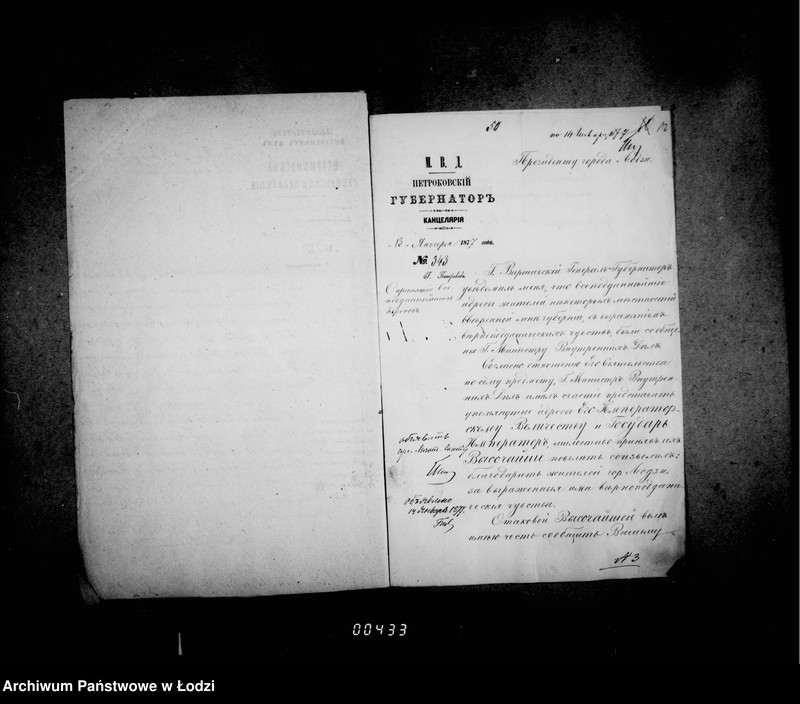 50
по 14 Января 1877
Президенту города Лодзи.
М. В. Д.
ПЕТРОКОВСКІЙ
ГУБЕРНАТОРЪ
КАНЦЕЛЯРІЯ
13 Января 1877 года.
№ 343
Г. Петроковъ
О принятіи все-
подданнѣйшихъ
адресовъ
Г. Варшавскій Генералъ-Губернаторъ
увѣдомилъ меня, что всеподданнѣйшіе
адресы жителей нѣкоторыхъ мѣстностей
ввѣренной мнѣ губерніи, съ выраженіемъ
вѣрноподданническихъ чувствъ, были сообще-
ны Г. Министру Внутреннихъ Дѣлъ.
Согласно отношенію Его Сіятельства
по сему предмету, Г. Министръ Внутрен-
нихъ Дѣлъ имѣлъ счастіе представить
упомянутые адресы Его Император-
скому Величеству и Государь
Императоръ, милостиво принявъ ихъ
Высочайше повелѣть соизволилъ:
благодарить жителей гор. Лодзи
за выраженныя ими вѣрноподдани-
ческія чувства.
О таковой Высочайшей волѣ
имѣю честь сообщить Вашему
объявить
объявлено
14 Января 1877.
№ 3
00433
Archiwum Państwowe w Łodzi